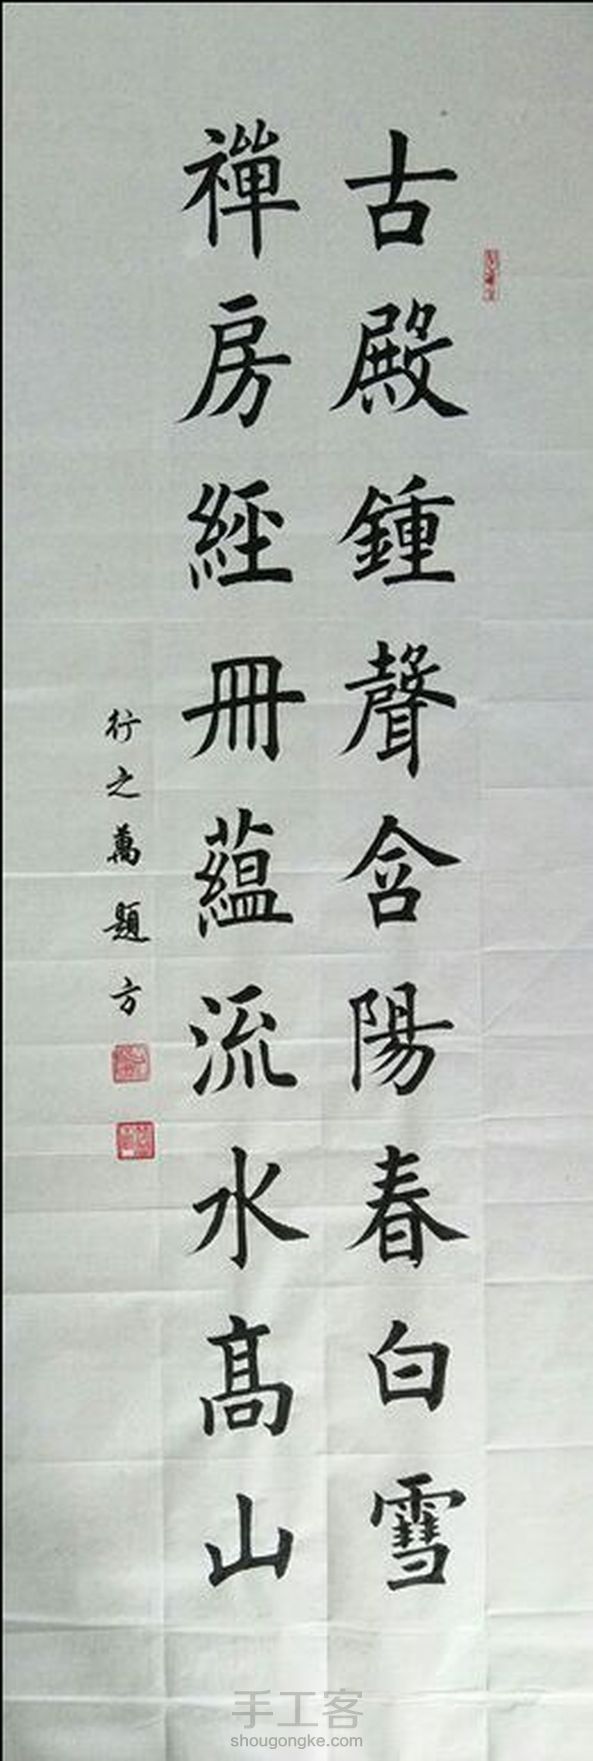 古殿鍾聲含陽春白雪
禪房經冊蘊流水髙山
行之萬題方
手工客
shougongke.com